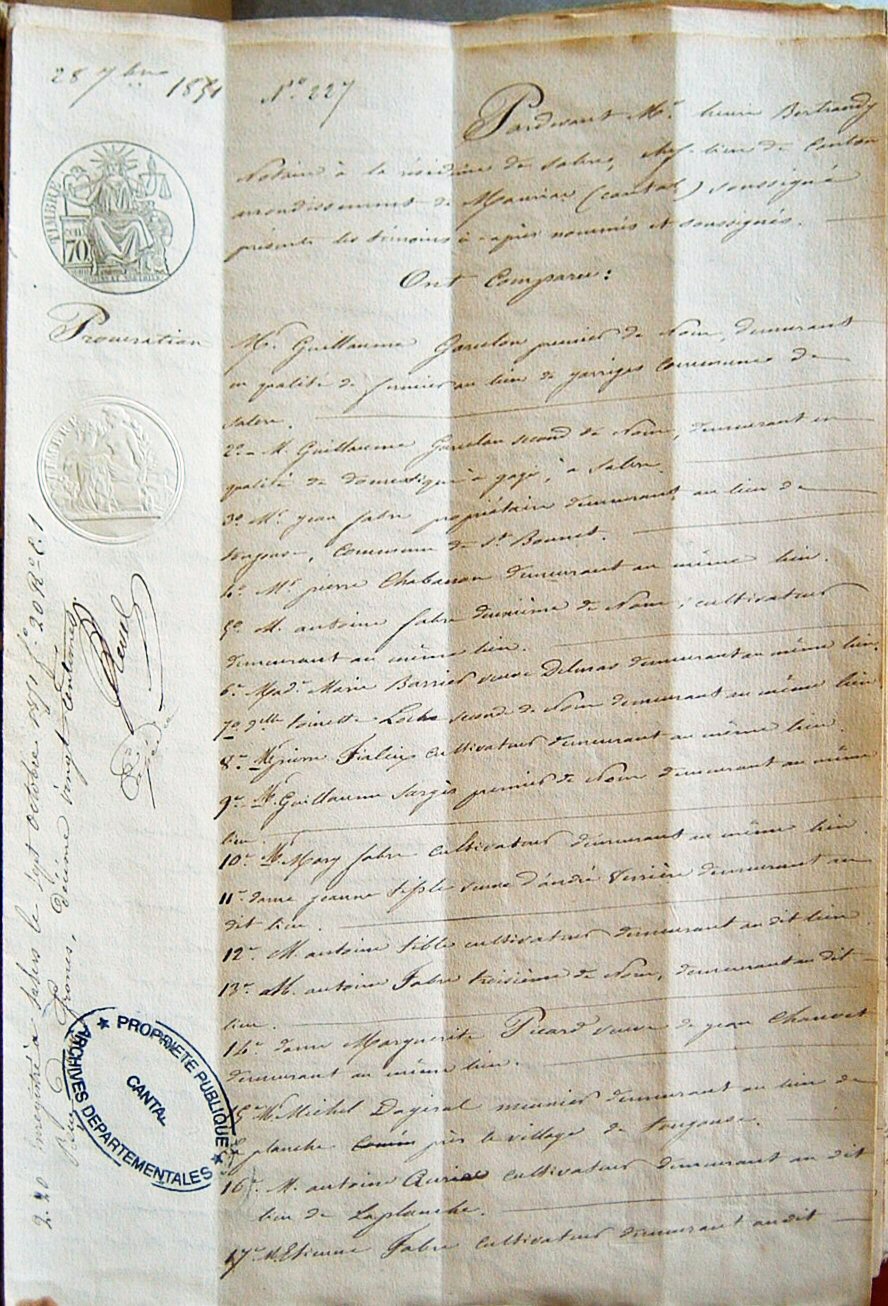 28 7bre 1871
N° 227
Pardevant Me henri Bertrandy
Notaire à la résidence de Salers, chef-lieu de Canton
arrondissement de Mauriac (cantal) soussigné
présents les témoins ci-après nommés et soussignés.
Ont Comparu :
TIMBRE
70
Procuration
Mr. Guillaume Garcelon premier de Nom, demeurant
en qualité de fermier au lieu de garriges Commune de
Salers.
2° M. Guillaume Garcelon second de Nom, demeurant en
qualité de domestique à gage, à Salers.
3° Mr. jean fabre propriétaire demeurant au lieu de
commune de St. Bonnet.
4° Mr pierre Chabanon demeurant au même lieu.
5° M. antoine fabre deuxième de Nom, cultivateur
demeurant au même lieu.
6° Mad. Marie Barrier veuve Delmas demeurant au même lieu.
7° dlle toinette second de Nom demeurant au même lieu
8° M pierre cultivateur demeurant au même lieu
9° M. Guillaume Sargès premier de Nom demeurant au même
lieu.
10° M. Mary fabre cultivateur demeurant au même lieu.
11° dame jeanne veuve d'andré demeurant au
dit lieu.
12° M. antoine cultivateur demeurant au dit lieu
13° M. antoine Fabre troisième de Nom, demeurant au dit
lieu.
14° dame Marguerite Picard veuve de jean Chauvet
demeurant au même lieu.
15° M. Michel Dagiral meunier demeurant au lieu de
la planche près le village de
16° M. antoine cultivateur demeurant au dit
lieu de Laplanche.
17° M. Etienne Fabre cultivateur demeurant au dit
2.20 Enregistré à Salers le sept octobre 1871 f° 20 R° C. 1
Reçu deux francs, décime vingt centimes
PROPRIETE PUBLIQUE
CANTAL
ARCHIVES DEPARTEMENTALES